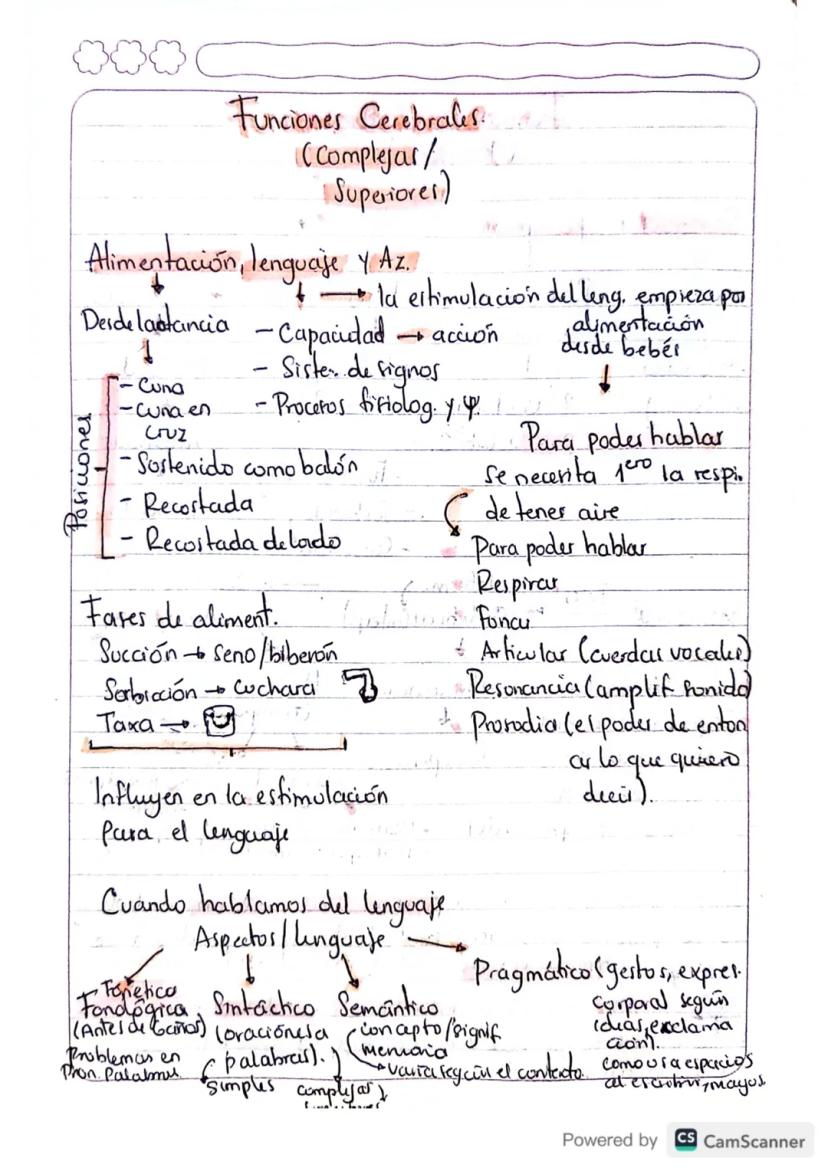 Funciones Cerebrales.
(Complejas/
Superiores)
Alimentación, lenguaje y Az.
Desde lactancia
Posiciones
- Cuna
- Cuna en
Cruz
- Sostenido como balón
- Recostada
- Recostada de lado
→ la estimulación del leng. empieza por
alimentación
desde bebés
- Capacidad → acción
- Sistem. de signos
- Procesos fisiolog. y φ.
Para poder hablar
se necesita 1ero la respi.
de tener aire
Para poder hablar
Respirar
Articular (cuerdas vocales)
Resonancia (amplif. sonido)
Prosodia (el poder de enton
ar lo que quiero
decir).
Fases de aliment.
Succión → Seno/biberón
Sorbición → Cuchara
Taxa →
Influyen en la estimulación
para el lenguaje
Cuando hablamos del lenguaje
Aspectos/lenguaje
- Fonético
Fonológica
(Antes de 6 años)
Problemas en
Pron. Palabras
Sintáctico
(oraciones a
palabras).
Simples
complejas)
Semántico
concepto/signif.
memoria
varia según el contexto.
Pragmático (gestos, expres.
corporal según
ideas, exclama
ción).
como usa espacios
al escribir, mayus.
Powered by CS CamScanner